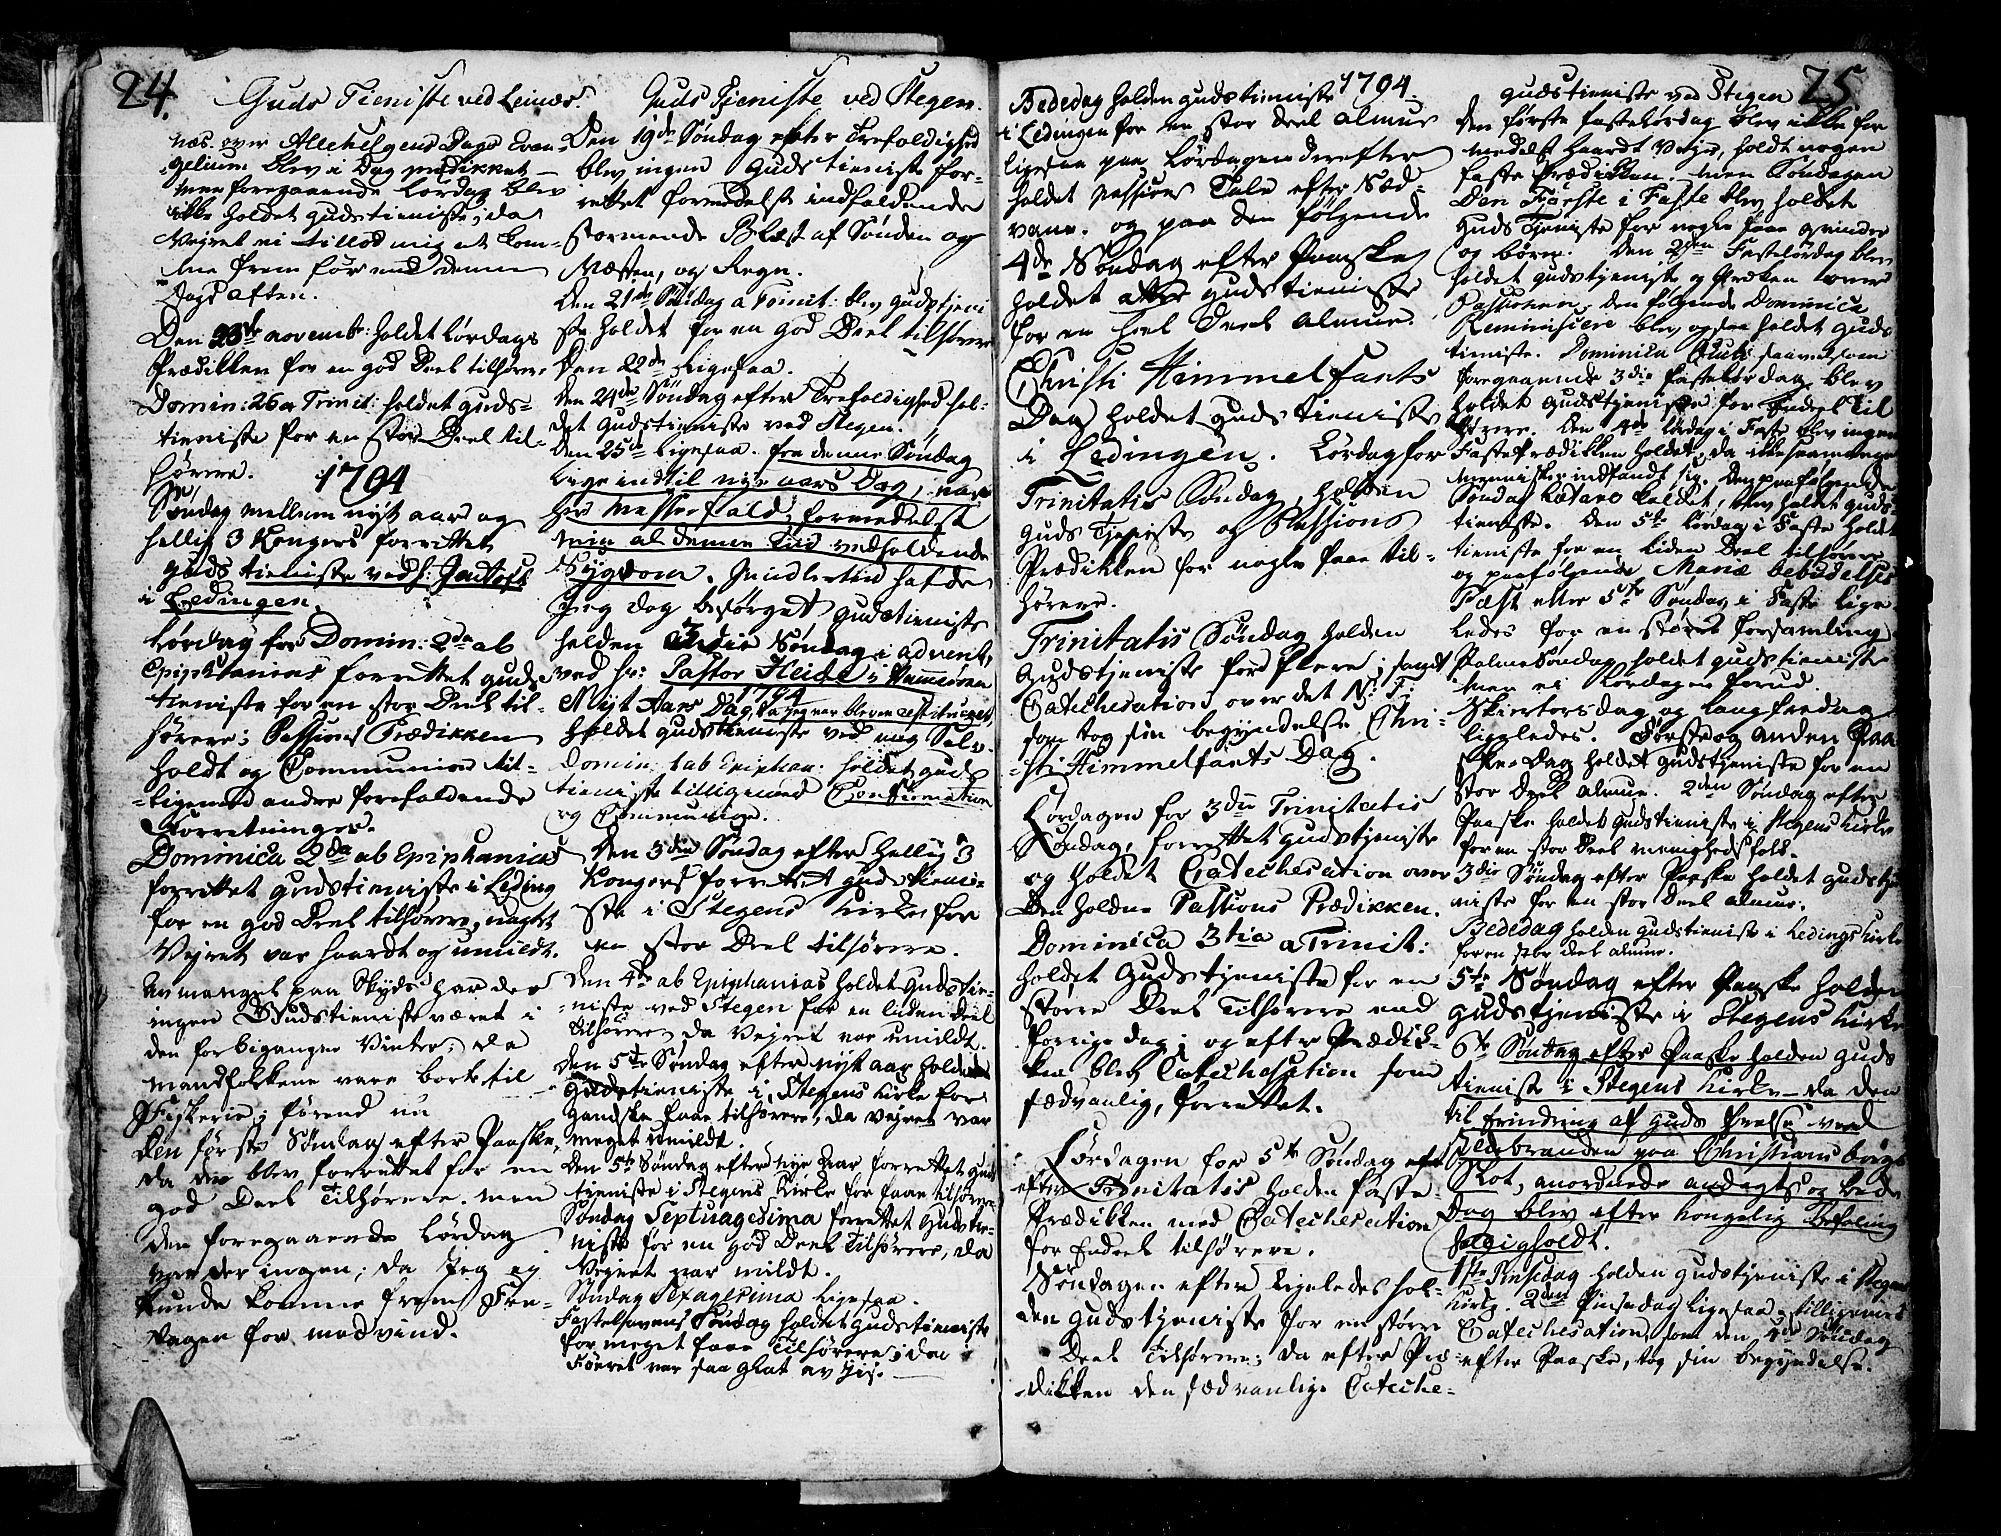 24.
Guds Tieniste ved Leines.
næs. over Allehelgens Dags Evan-
gelium blev i Dag prædikket —
men foregaaende Lørdag blev
ikke holdet gudstieniste; da
Vejret ei tillod mig at kom-
me frem før ved denne
Dags aften.
Den 23de novembr: holdet Lørdags
Prædikken for en god Deel tilhørere
Domin: 26 a Trinit: holdet guds-
tieniste for en stor Deel til-
hørere.
1794
Søndag mellem nyt aar og
hellig 3 Kongers forrettet
guds tieniste ved h:
i Ledingen.
Lørdag før Domin: 2da ab
Epiphanias forrettet guds
tieniste for en stor Deel til-
hørere; Passions Prædikken
holdt og Communion til-
ligemed andre forefaldende
Forretninger.
Dominica 2da ab Epiphanias
forrettet gudstieniste i Leding
for en god Deel tilhørere, uagtet
Vejret var haardt og umildt.
Av mangel paa Skyds har der
ingen Gudstieniste været i
den forbigangne Vinter; da
mandfolkene vare borte til
Fiskerie; førend nu
Den første Søndag efter Paaske,
da der blev forrettet for en
god Deel Tilhørere. men
den foregaaende Lørdag
var der ingen; da jeg ej
kunde komme frem Fre-
dagen for modvind.
Guds Tjeniste ved Stegen.
Den 19de Søndag efter Trefoldighed
blev ingen Guds tieniste for-
rettet formedelst indfaldende
stormende Blæst af Sønden og
Væsten, og Regn.
Den 21de Søndag a Trinit: blev gudstjeni
ste holdet for en god Deel tilhørere
Den 22de Ligesaa.
Den 24de Søndag efter Trefoldighed hol-
det Gudstieniste ved Stegen.
Den 25de Ligesaa. fra denne Søndag
lige indtil nye aars Dag, var
her Messefald; formedelst
min al denne Tiid vedholdende
Sygdom. Imidlertid hafde
Jeg dog besørget gudstieniste
holden 3die Søndag i advent,
ved hr: Pastor Heide i Hammerøen
1794
Nyt Aars Dag, da jeg var bleven restitueret,
holdet gudstieniste ved mig Selv.
Domin: 1 ab Epiphan: holdet guds
tieniste tilligemed Confirmation
og Communion.
Den 3die Søndag efter Hellig 3
Kongers forrettet gudstieni-
ste i Stegens Kirke for
en stor Deel tilhørere.
Den 4de ab Epiphanias holdet Guds tie-
niste ved Stegen for en liden deel
tilhørere, da Vejret var umildt.
Den 5te Søndag efter nyt aar holdet
gudstieniste i Stegens Kirke for
gandske faae tilhørere, da vejret var
meget umildt.
Den 5te Søndag efter nye aar forrettet guds
tjeniste i Stegens Kirke for faae tilhørere.
Søndag Septuagesima forrettet gudstie-
niste for en god Deel Tilhørere, da
Vejret var mildt.
Søndag Sexagesima Ligesaa.
Fastelavens Søndag holdet gudstieniste
for meget faae Tilhørere; da
Føret var saa glat av jis. —
1794.
Bededag holden gudstieniste
i Ledingen for en stor deel almue
ligesaa paa Lørdagen derefter
holdet Passions Tale efter Sæd-
vane. og paa den følgende
4de Søndag efter Paaske
holdet gudstieniste
for en heel Deel almue.
Christi Himmelfarts
Dag holdet guds tieniste
i Ledingen. Lørdag for
Trinitatis Søndag, holden
Guds Tjeniste og Passions
Prædikken for nogle faae til-
hørere.
Trinitatis Søndag holden
Gudstjeniste for flere; samt
Catechesation over det N: T:
som tog sin begyndelse Chri-
sti Himmelfarts Dag.
Lørdagen for 3die Trinitatis
Søndag, forrettet gudstjeniste
og holdet Catechesation over
den holdne Passions Prædikken.
Dominica 3tia a Trinit:
holdet Gudstjeniste for en
større Deel Tilhørere end
forrige dag; og efter Prædik-
ken blev Catechesation som
sædvanlig, forrettet.
Lørdagen for 5te Søndag
efter Trinitatis holden faste-
Prædikken med Catechesation
for Endeel tilhørere.
Søndagen efter ligeledes hol-
den gudstjeniste for en større
Deel Tilhørere; da efter Præ-
dikken den sædvanlige Cateche-
25
gudstieniste ved Stegen
Den første fasteLørdag blev ikke for
medelst haardt Vejr, holdt nogen
faste Prædikken. men Søndagen
Den Første i Faste blev holdet
Guds Tjeniste for nogle faae qvinder
og børn. Den 2den FasteLørdag blev
holdet gudstjeniste og Præken over
Passionen. Den følgende Dominica
Reminiscere blev ogsaa holdet guds
tieniste. Dominica Oculi saavelsom
foregaaende 3die FasteLørdag blev
holdet gudstjeniste for Endeel til
hørere. Den 4de Lørdag i Faste blev ingen
FastePrædikken holdet, da ikke saa mange
mennisker indfandt sig. Den paafølgende
Søndag Lætare kaldet, blev holdet guds-
tieniste. Den 5te Lørdag i Faste holdt
tieniste for en liden Deel tilhørere
og paafølgende Mariæ bebudelses
Fæst eller 5te Søndag i Faste lige-
ledes for en større forsamling
Palme Søndag holdet gudstieniste
men ei Lørdagen forud.
Skiertorsdag og langfredag
ligeledes. Første og anden Paa
ske-Dag holdet gudstjeniste for en
stor Deel almue. 2den Søndag efter
Paaske holdet gudstieniste i Stegens Kirke
for en stor Deel menighedsfolk.
3die Søndag efter Paaske holdet gudstje
niste for en stor Deel almue.
Bededag holden gudstieniste i Ledings Kirke
for en stor deel almue.
5te Søndag efter Paaske holden
gudstjeniste i Stegens Kirke
6te Søndag efter Paaske holden guds
tieniste i Stegens Kirke — da den
til Erindring af Guds frelse ved
Ildebranden paa Christiansborgs
Slot, anordnede andagts og bede
Dag blev efter Kongelig Befaling
helligholdt.
1ste Pinsedag holden gudstjeniste i Stegens
Kirke. 2den Pinsedag ligesaa; tilligemed
Catechesation, som den 4de Søndag
efter Paaske, tog sin begyndelse.